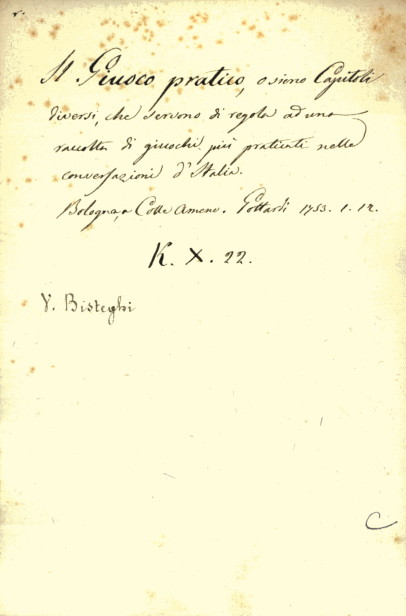 Il Giuoco pratico, o sieno Capitoli
diversi, che servono di regola ad una
raccolta di giuochi più praticati nelle
conversazioni d'Italia.
Bologna, a Colle Ameno. Pottardi 1753. 1. 12.
K. X. 22.
V. Bisteghi
C